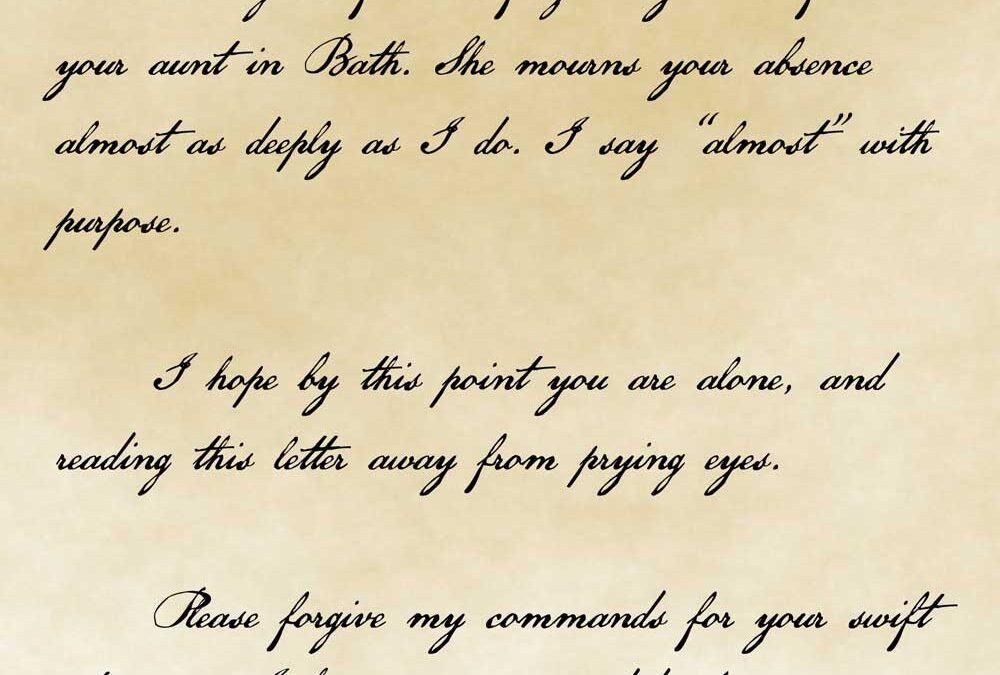 your aunt in Bath. She mourns your absence
almost as deeply as I do. I say “almost” with
purpose.
I hope by this point you are alone, and
reading this letter away from prying eyes.
Please forgive my commands for your swift